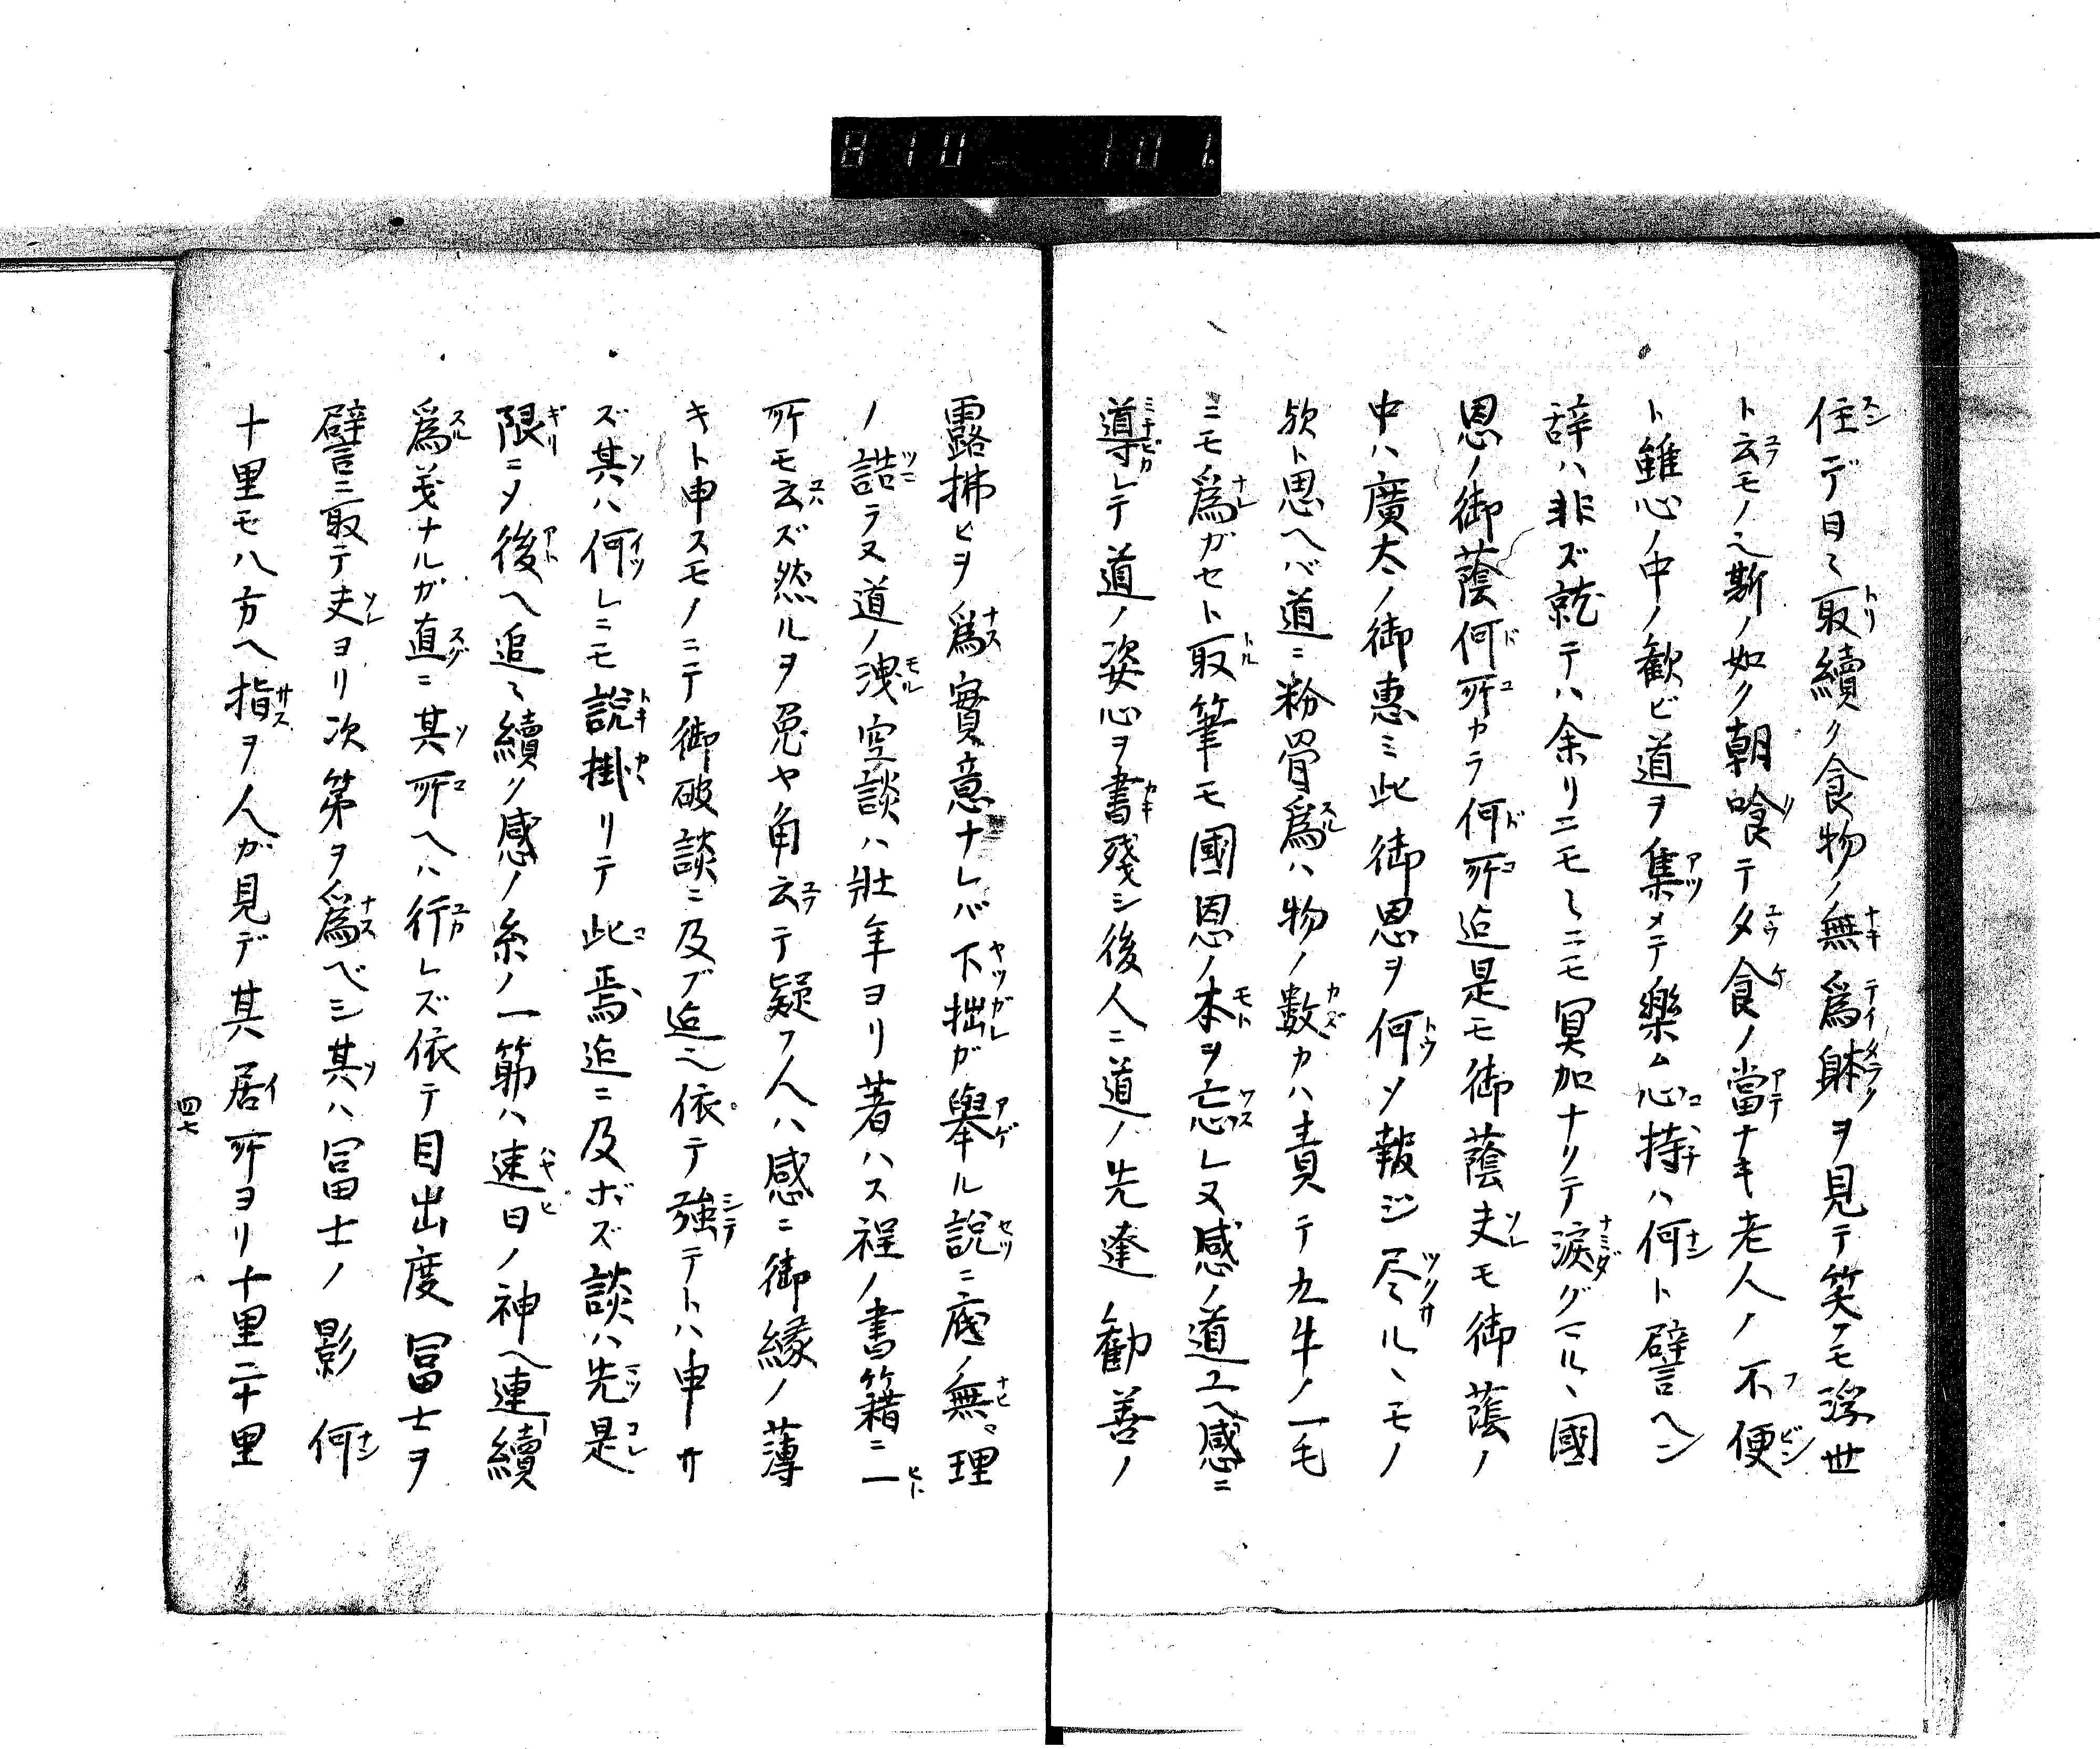 810 - 101.
住デ日〻取續ク食物ノ無爲躰ヲ見テ笑フモ浮世
ト云モノヘ斯ノ如ク朝喰テ夕食ノ當ナキ老人ノ不便
ト雖心ノ中ノ歓ビ道ヲ集メテ樂ム心持ハ何ト譬ヘン
辞ハ非ズ就テハ余リニモ〻ニモ冥加ナリテ涙グマル、國
恩ノ御蔭何所カラ何所迠是モ御蔭夫モ御蔭ノ
中ハ廣太ノ御惠ミ此御恩ヲ何ソ報ジ尽ルヽモノ
欤ト思ヘバ道ニ粉骨爲ハ物ノ数カハ責テ九牛ノ一毛
ニモ爲ガセト取筆モ國恩ノ本ヲ忘レヌ感ノ道ユヘ感ニ
導レテ道ノ姿心ヲ書殘シ後人ニ道ノ先達勧善ノ
露拂ヒヲ爲實意ナレバ下拙ガ擧ル説ニ底ノ無理
ノ詰ラヌ道ノ洩空談ハ壯年ヨリ著ハス程ノ書籍ニ一
所モ云ズ然ルヲ兎ヤ角云テ疑フ人ハ感ニ御縁ノ薄
キト申スモノニテ御破談ニ及ブ迠ヘ依テ強テトハ申サ
ズ其ハ何レニモ説掛リテ此焉迠ニ及ボズ談ハ先是
限ニメ後ヘ追〻續ク感ノ糸ノ一筋ハ速日ノ神ヘ連續
爲義ナルガ直ニ其所ヘハ行レズ依テ目出度冨士ヲ
譬ニ取テ夫ヨリ次第ヲ爲ベシ其ハ冨士ノ影何
十里モ八方ヘ指ヲ人ガ見デ其居所ヨリ十里二十里
四七